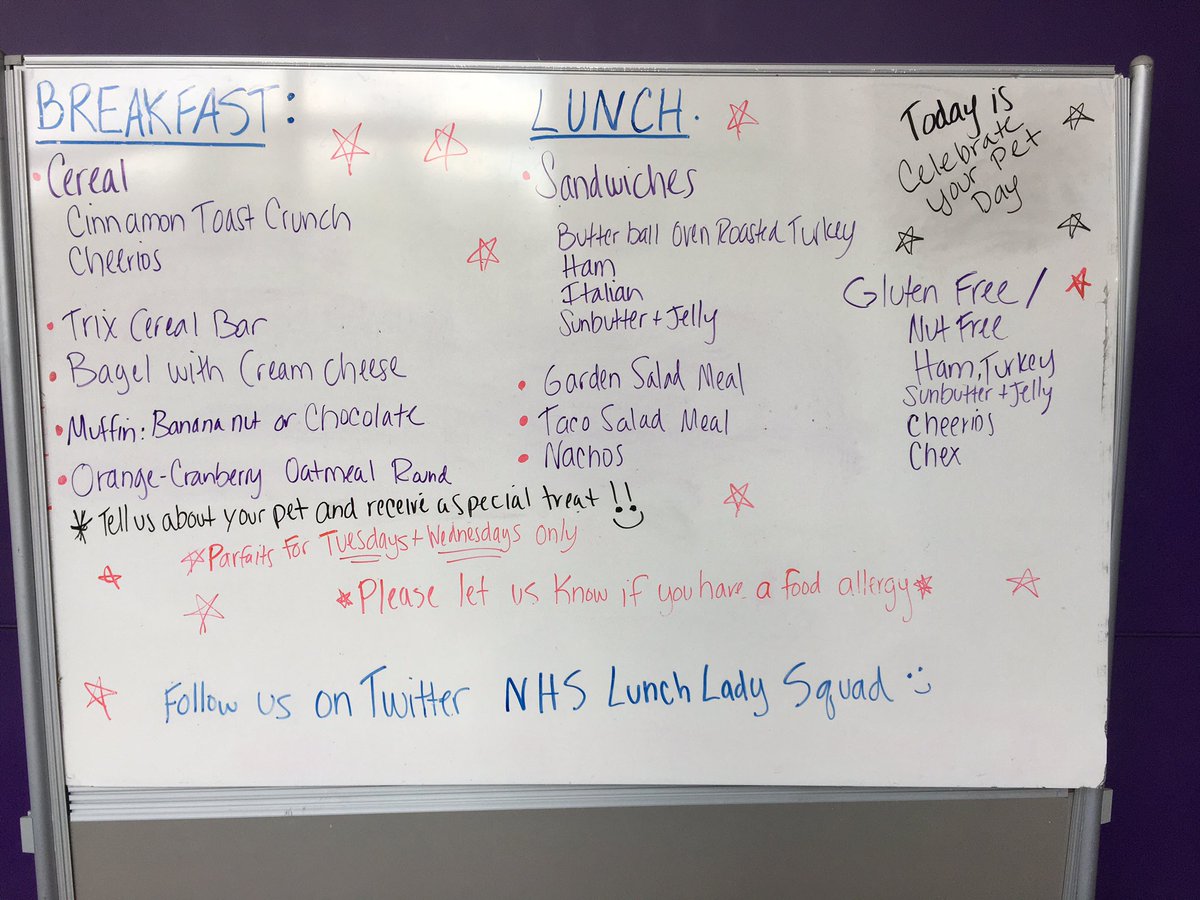 BREAKFAST:
• Cereal
Cinnamon Toast Crunch
Cheerios
• Trix Cereal Bar
• Bagel with Cream Cheese
• Muffin: Banana nut or Chocolate
• Orange-Cranberry Oatmeal Round
LUNCH.
• Sandwiches
Butter ball Oven Roasted Turkey
Ham
Italian
Sunbutter + Jelly
• Garden Salad Meal
• Taco Salad Meal
• Nachos
Today is
Celebrate
your Pet
Day
Gluten Free /
Nut Free
Ham, Turkey
Sunbutter + Jelly
Cheerios
Chex
* Tell us about your pet and receive a special treat !!
☆ Parfaits for Tuesdays + Wednesdays only
* Please let us know if you have a food allergy *
Follow us on Twitter NHS Lunch Lady Squad :)